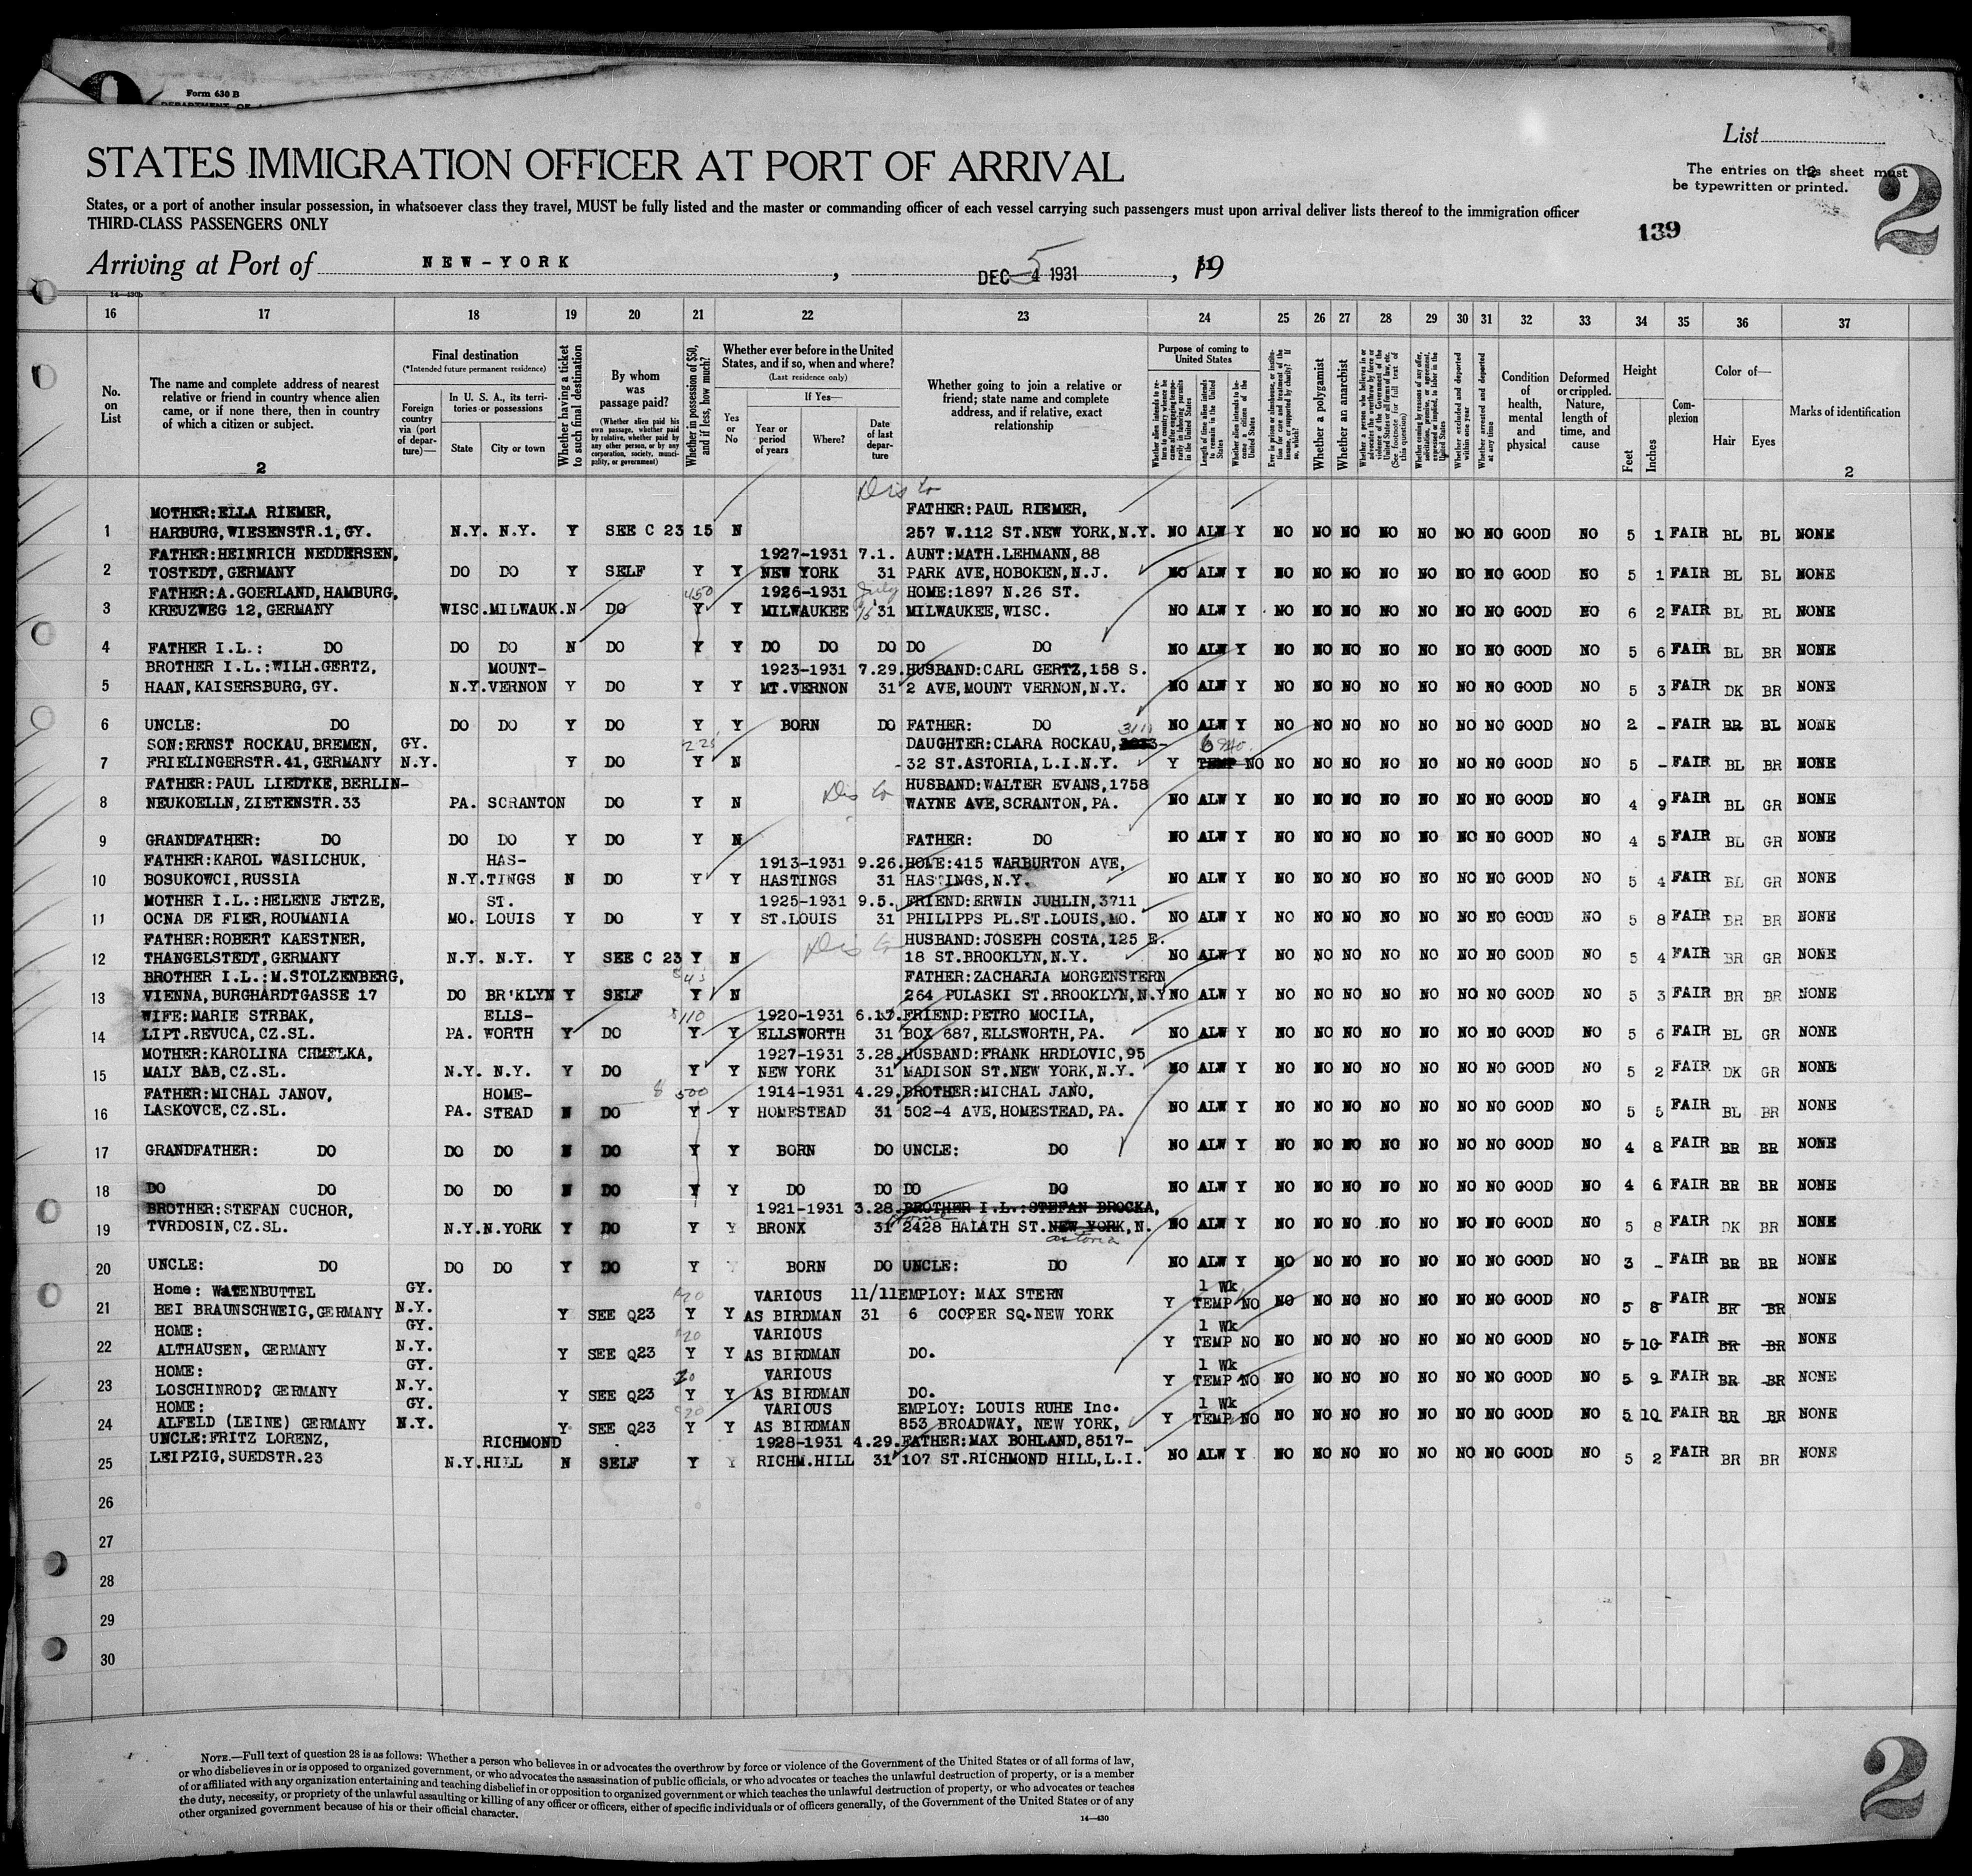 Form 630 B
STATES IMMIGRATION OFFICER AT PORT OF ARRIVAL
List
The entries on this sheet must
be typewritten or printed.
2
States, or a port of another insular possession, in whatsoever class they travel, MUST be fully listed and the master or commanding officer of each vessel carrying such passengers must upon arrival deliver lists thereof to the immigration officer
THIRD-CLASS PASSENGERS ONLY
139
Arriving at Port of NEW-YORK , DEC 5 4 1931 , 19 31
14-430b
16 17 18 19 20 21 22 23 24 25 26 27 28 29 30 31 32 33 34 35 36 37
No. on List
The name and complete address of nearest relative or friend in country whence alien came, or if none there, then in country of which a citizen or subject.
2
Final destination
(*Intended future permanent residence)
Foreign country via (port of departure)—
In U. S. A., its territories or possessions
State
City or town
Whether having a ticket to such final destination
By whom was passage paid?
(Whether alien paid his own passage, whether paid by relative, whether paid by any other person, or by any corporation, society, municipality, or government)
Whether in possession of $50, and if less, how much?
Whether ever before in the United States, and if so, when and where?
(Last residence only)
Yes or No
If Yes—
Year or period of years
Where?
Date of last departure
Whether going to join a relative or friend; state name and complete address, and if relative, exact relationship
Purpose of coming to United States
Length of time alien intends to remain in the United States
Whether alien intends to become a citizen of the United States
Whether a polygamist
Whether an anarchist
(See footnote for full text of this question)
Whether excluded and deported within one year
Whether arrested and deported at any time
Condition of health, mental and physical
Deformed or crippled. Nature, length of time, and cause
Height
Feet
Inches
Complexion
Color of—
Hair
Eyes
Marks of identification
2
MOTHER:ELLA RIEMER, FATHER:PAUL RIEMER,
1 HARBURG,WIESENSTR.1,GY. N.Y. N.Y. Y SEE C 23 15 N 257 W.112 ST.NEW YORK,N.Y. NO ALW Y NO NO NO NO NO NO NO GOOD NO 5 1 FAIR BL BL NONE
FATHER:HEINRICH NEDDERSEN, 1927-1931 7.1. AUNT:MATH.LEHMANN,88
2 TOSTEDT,GERMANY DO DO Y SELF Y Y NEW YORK 31 PARK AVE,HOBOKEN,N.J. NO ALW Y NO NO NO NO NO NO NO GOOD NO 5 1 FAIR BL BL NONE
FATHER:A.GOERLAND,HAMBURG, 450 1926-1931 July HOME:1897 N.26 ST.
3 KREUZWEG 12,GERMANY WISC.MILWAUK.N DO Y Y MILWAUKEE 31 MILWAUKEE,WISC. NO ALW Y NO NO NO NO NO NO NO GOOD NO 6 2 FAIR BL BL NONE
4 FATHER I.L.: DO DO DO N DO Y Y DO DO DO DO DO NO ALW Y NO NO NO NO NO NO NO GOOD NO 5 6 FAIR BL BR NONE
BROTHER I.L.:WILH.GERTZ, MOUNT- 1923-1931 7.29. HUSBAND:CARL GERTZ,158 S.
5 HAAN,KAISERSBURG,GY. N.Y.VERNON Y DO Y Y MT.VERNON 31 2 AVE,MOUNT VERNON,N.Y. NO ALW Y NO NO NO NO NO NO NO GOOD NO 5 3 FAIR DK BR NONE
6 UNCLE: DO DO DO Y DO Y Y BORN DO FATHER: DO NO ALW Y NO NO NO NO NO NO NO GOOD NO 2 - FAIR BR BL NONE
SON:ERNST ROCKAU,BREMEN, GY. DAUGHTER:CLARA ROCKAU,
7 FRIELINGERSTR.41,GERMANY N.Y. Y DO Y N 32 ST.ASTORIA,L.I.N.Y. Y TEMP NO NO NO NO NO NO NO NO GOOD NO 5 - FAIR BL BR NONE
FATHER:PAUL LIEDTKE,BERLIN- HUSBAND:WALTER EVANS,1758
8 NEUKOELLN,ZIETENSTR.33 PA. SCRANTON DO Y N WAYNE AVE,SCRANTON,PA. NO ALW Y NO NO NO NO NO NO NO GOOD NO 4 9 FAIR BL GR NONE
9 GRANDFATHER: DO DO DO Y DO Y N FATHER: DO NO ALW Y NO NO NO NO NO NO NO GOOD NO 4 5 FAIR BL GR NONE
FATHER:KAROL WASILCHUK, HAS- 1913-1931 9.26. HOME:415 WARBURTON AVE,
10 BOSUKOWCI,RUSSIA N.Y.TINGS N DO Y Y HASTINGS 31 HASTINGS,N.Y. NO ALW Y NO NO NO NO NO NO NO GOOD NO 5 4 FAIR BL GR NONE
MOTHER I.L.:HELENE JETZE, ST. 1925-1931 9.5. FRIEND:ERWIN JUHLIN,3711
11 OCNA DE FIER,ROUMANIA MO. LOUIS Y DO Y Y ST.LOUIS 31 PHILIPPS PL.ST.LOUIS,MO. NO ALW Y NO NO NO NO NO NO NO GOOD NO 5 8 FAIR BR BR NONE
FATHER:ROBERT KAESTNER, HUSBAND:JOSEPH COSTA,125 E.
12 THANGELSTEDT,GERMANY N.Y. N.Y. Y SEE C 23 Y N 18 ST.BROOKLYN,N.Y. NO ALW Y NO NO NO NO NO NO NO GOOD NO 5 4 FAIR BR GR NONE
BROTHER I.L.:M.STOLZENBERG, FATHER:ZACHARJA MORGENSTERN
13 VIENNA,BURGHARDTGASSE 17 DO BR'KLYN Y SELF Y N 264 PULASKI ST.BROOKLYN,N.Y NO ALW Y NO NO NO NO NO NO NO GOOD NO 5 3 FAIR BR BR NONE
WIFE:MARIE STRBAK, ELLS- $110 1920-1931 6.17. FRIEND:PETRO MOCILA,
14 LIPT.REVUCA,CZ.SL. PA. WORTH Y DO Y Y ELLSWORTH 31 BOX 687,ELLSWORTH,PA. NO ALW Y NO NO NO NO NO NO NO GOOD NO 5 6 FAIR BL GR NONE
MOTHER:KAROLINA CHMELKA, 1927-1931 3.28. HUSBAND:FRANK HRDLOVIC,95
15 MALY BAB,CZ.SL. N.Y. N.Y. Y DO Y Y NEW YORK 31 MADISON ST.NEW YORK,N.Y. NO ALW Y NO NO NO NO NO NO NO GOOD NO 5 2 FAIR DK GR NONE
FATHER:MICHAL JANOV, HOME- 500 1914-1931 4.29. BROTHER:MICHAL JANO,
16 LASKOVCE,CZ.SL. PA. STEAD N DO Y Y HOMESTEAD 31 502-4 AVE,HOMESTEAD,PA. NO ALW Y NO NO NO NO NO NO NO GOOD NO 5 5 FAIR BL BR NONE
17 GRANDFATHER: DO DO DO N DO Y Y BORN DO UNCLE: DO NO ALW Y NO NO NO NO NO NO NO GOOD NO 4 8 FAIR BR BR NONE
18 DO DO DO DO N DO Y Y DO DO DO DO NO ALW Y NO NO NO NO NO NO NO GOOD NO 4 6 FAIR BR BR NONE
BROTHER:STEFAN CUCHOR, 1921-1931 3.28. BROTHER I.L.:STEFAN BROCKA,
19 TVRDOSIN,CZ.SL. N.Y.N.YORK Y DO Y Y BRONX 31 2428 HALATH ST.NEW YORK,N. NO ALW Y NO NO NO NO NO NO NO GOOD NO 5 8 FAIR DK BR NONE
astoria
20 UNCLE: DO DO DO Y DO Y Y BORN DO UNCLE: DO NO ALW Y NO NO NO NO NO NO NO GOOD NO 3 - FAIR BR BR NONE
Home: WATENBUTTEL GY. 20 VARIOUS 11/11 EMPLOY: MAX STERN 1 Wk
21 BEI BRAUNSCHWEIG,GERMANY N.Y. Y SEE Q23 Y Y AS BIRDMAN 31 6 COOPER SQ.NEW YORK Y TEMP NO NO NO NO NO NO NO NO GOOD NO 5 8 FAIR BR BR NONE
HOME: GY. 20 VARIOUS 1 Wk
22 ALTHAUSEN, GERMANY N.Y. Y SEE Q23 Y Y AS BIRDMAN DO. Y TEMP NO NO NO NO NO NO NO NO GOOD NO 5 10 FAIR BR BR NONE
HOME: GY. 20 VARIOUS 1 Wk
23 LOSCHINROD? GERMANY N.Y. Y SEE Q23 Y Y AS BIRDMAN DO. Y TEMP NO NO NO NO NO NO NO NO GOOD NO 5 9 FAIR BR BR NONE
HOME: GY. 20 VARIOUS EMPLOY: LOUIS RUHE Inc. 1 Wk
24 ALFELD (LEINE) GERMANY N.Y. Y SEE Q23 Y Y AS BIRDMAN 853 BROADWAY, NEW YORK, Y TEMP NO NO NO NO NO NO NO NO GOOD NO 5 10 FAIR BR BR NONE
UNCLE:FRITZ LORENZ, RICHMOND 1928-1931 4.29. FATHER:MAX BOHLAND,8517-
25 LEIPZIG,SUEDSTR.23 N.Y.HILL N SELF Y Y RICHM.HILL 31 107 ST.RICHMOND HILL,L.I. NO ALW Y NO NO NO NO NO NO NO GOOD NO 5 2 FAIR BR BR NONE
26
27
28
29
30
NOTE.—Full text of question 28 is as follows: Whether a person who believes in or advocates the overthrow by force or violence of the Government of the United States or of all forms of law,
or who disbelieves in or is opposed to organized government, or who advocates the assassination of public officials, or who advocates or teaches the unlawful destruction of property, or is a member
of or affiliated with any organization entertaining and teaching disbelief in or opposition to organized government or which teaches the unlawful destruction of property, or who advocates or teaches
the duty, necessity, or propriety of the unlawful assaulting or killing of any officer or officers, either of specific individuals or of officers generally, of the Government of the United States or of any
other organized government because of his or their official character.
14—430
2